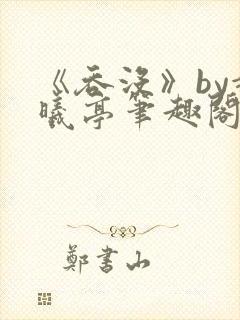 《吞没》by
曦亭笔趣阁
郑书山